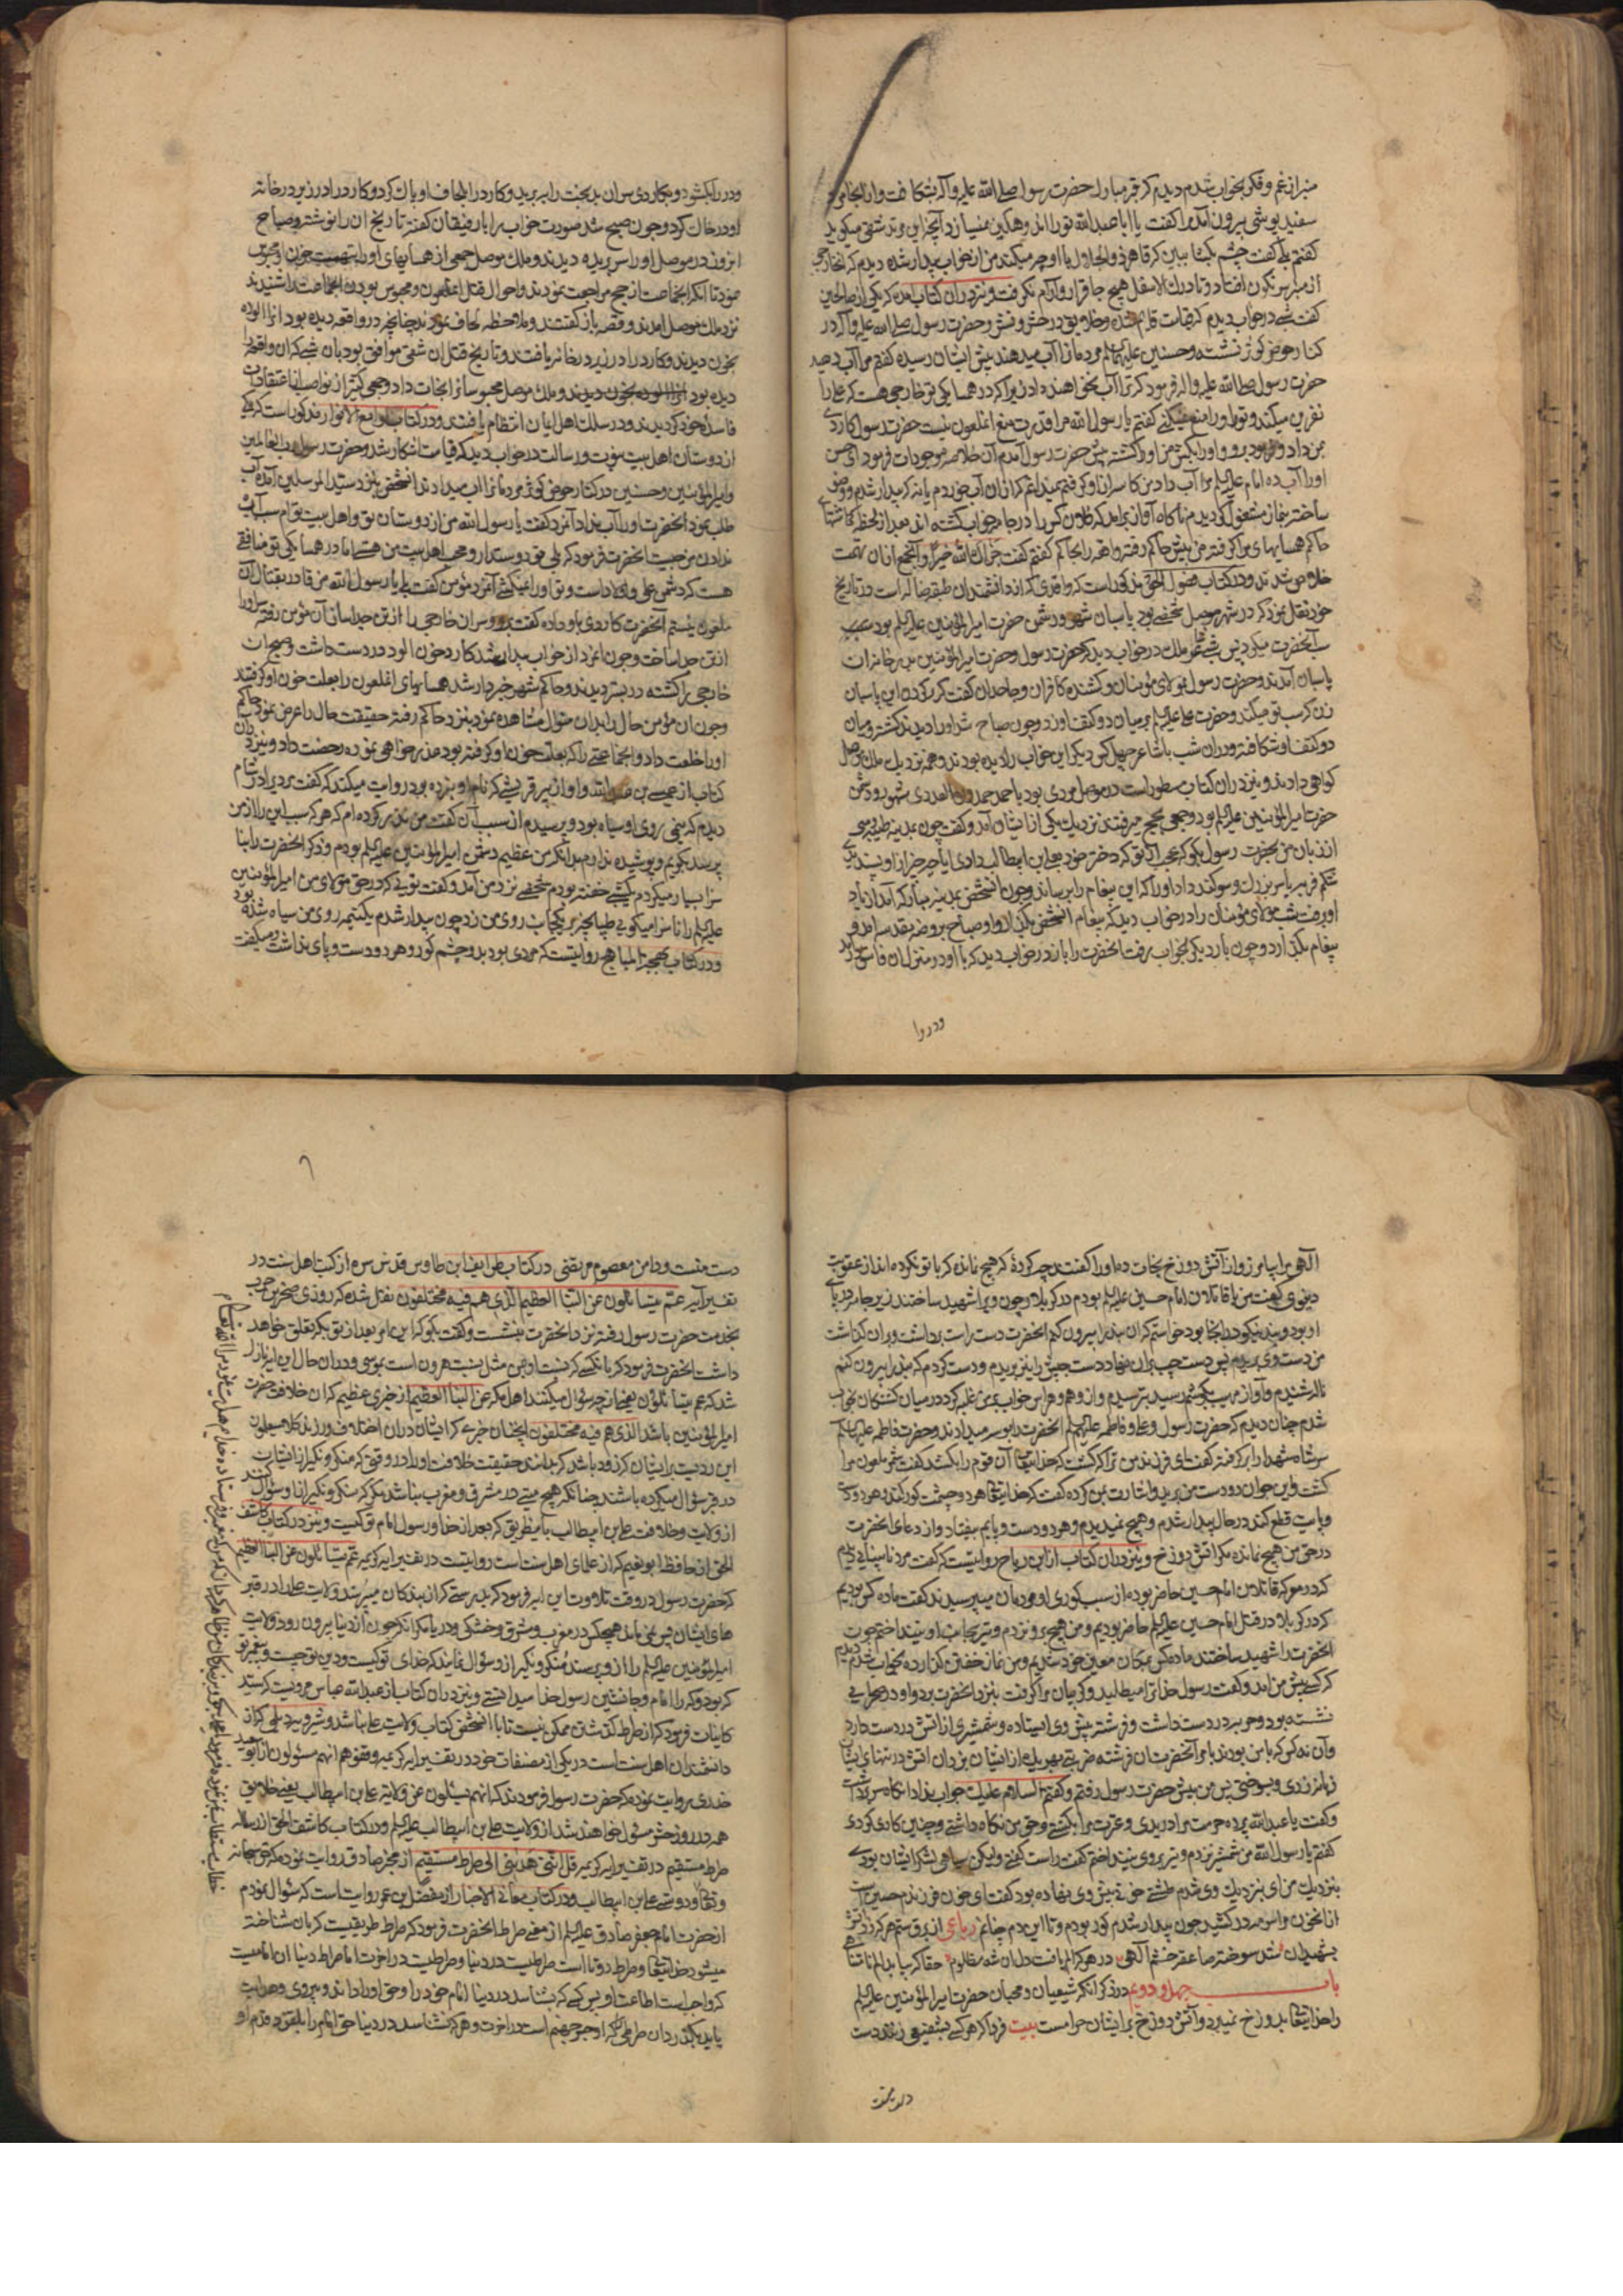 من از غم و فکر بخواب شدم دیدم که قبر مبارک حضرت رسول صلی الله علیه و آله بشکافت و از انجا مردی
سفید پوشی بیرون آمد مرا گفت یا ابا عبدالله تو را
گفتم بلی گفت چشم بکشا ببین که قاهر ذوالجلال با او چه میکند من از خواب بیدار شده دیدم که
از منبر سرنگون افتاد و تا درک الاسفل هیچ جا قرار و آرام نگرفت و نیز در آن کتاب آمده که یکی از صالحین
گفت شبی در خواب دیدم که قیامت قائم شده و خلایق در حشر و نشر و حضرت رسول صلی الله علیه و آله در
کنار حوض کوثر نشسته و حسنین علیهما السلم مردمانرا آب میدهند پیش ایشان رسیده گفتم مرا آب دهید
حضرت رسول صلی الله علیه و اله فرمود که ترا آب نخواهند داد زیرا که در همسایکی تو خارجی هست که علی را
نفرین میکند و تو او را منع نمیکنی گفتم یا رسول الله مرا قدرت منع آن ملعون نیست حضرت رسول کاردی
بمن داد و فرمود برو و او را بکش من او را کشته پیش حضرت رسول آمدم آن خلاصه موجودات فرمود ای حسن
او را آب ده امام علیه السلم مرا آب داد من کاسه از او گرفتم نمیدانم که از آن آب خوردم یا نه که بیدار شدم و وضو
ساخته بنماز مشغول گردیدم ناگاه آواز برآمد که فلان کس را در جامه خواب کشته اند بعد از لحظه گماشتهای
حاکم همسایهای مرا گرفته من پیش حاکم رفته واقعه را بحاکم گفتم گفت جزاک الله خیرا و آن جمع از آن تهمت
خلاص شدند و در کتاب فصول الحق مذکور است که واقدی که از دانشمندان طبقه ضاله است در تاریخ
خود نقل نموده که در شهر موصل شخصی بود پاسبان شهر و دشمن حضرت امیرالمؤمنین علیه السلم بود
سب آنحضرت میکرد پس شبی ملک در خواب دید که حضرت رسول و حضرت امیرالمؤمنین بدر خانه آن
پاسبان آمدند و حضرت رسول بمولای مؤمنان و کشنده کافران و جاحدان گفت که گردن این پاسبان
زن که سب تو میکند و حضرت علی علیه السلم بر میان دو کتف او زد و چون صباح شد او را دیدند کشته و میان
دو کتف او شکافته و در آن شب باشاعر چهل کس دیگر این خواب را دیده بودند و همه نزدیک ملک موصل
گواهی دادند و نیز در آن کتاب مسطور است در موصل مردی بود
حضرت امیرالمؤمنین علیه السلم بود و جمعی بحج میرفتند نزدیک یکی از ایشان آمد و گفت چون بمدینه طیبه رسی
از زبان من بحضرت رسول بگو که عجب از تو که دختر خود بعلی ابن ابیطالب دادی آیا چه چیز از او پسندیدی
شکم فربه یا سر بزرک و سوگند داد او را که این پیغام را برساند و چون آن شخص بمدینه مبارکه آمد از یاد
او رفت شب مولای مؤمنان را در خواب دید که پیغام آن شخص بگذار او صباح بروضه مقدسه آمد و
پیغام بگذارد و چون بار دیگر بخواب رفت آنحضرت را باز در خواب دید که با او در منزل آن فاسق
ودر را
ودر را بکشود و بکاردی سر آن بدبخت را ببرید و کارد را بلحاف او پاک کرد و کارد را در زیر در خانه
او در خاک کرد و چون صبح شد صورت خواب را با رفیقان گفته تاریخ آن را نوشته و صباح
آن روز در موصل او را سر بریده دیدند و ملک موصل جمعی از همسایهای او را بتهمت خون او محبوس
نمود تا آنکه انجماعت از حج مراجعت نمودند و احوال قتل آن ملعون و محبوس بودن انجماعت را شنیدند
نزد ملک موصل آمدند و قصه باز گفتند و ملاحظه لحاف نمودند چنانچه در واقعه دیده بود آنرا آلوده
بخون دیدند و کارد را در زیر در خانه یافتند و تاریخ قتل آن شقی موافق بود بآن شبی که آن واقعه را
دیده بود و ملک موصل محبوسانرا نجات داد و جمعی کثیر از نواصب از اعتقادات
فاسده خود گردیدند و در سلک اهل ایمان انتظام یافتند و در کتاب لوامع الانوار مذکور است که یکی
از دوستان اهل بیت نبوت و رسالت در خواب دید که قیامت آشکار شد و حضرت رسول رب العالمین
و امیرالمؤمنین و حسنین در کنار حوض کوثر مردمانرا آب میدادند آن شخص بنزد سید المرسلین آمده آب
طلب نمود آنحضرت او را آب نداد آنمرد گفت یا رسول الله من از دوستان تو و اهل بیت توام سبب آب
ندادن من چیست آنحضرت فرمود که بلی تو دوستدار و محب اهل بیت من هستی اما در همسایکی تو منافقی
هست که دشمن علی و اولاد است و تو او را نمیکشی آنمرد مؤمن گفت بلی یا رسول الله من قادر بقتال آن
ملعون نیستم آنحضرت کاردی باو داده گفت برو و سر آن خارجی را از تن جدا ساز آن مؤمن رفته سر او را
از تن جدا ساخت و چون آنمرد از خواب بیدار شد کارد خون آلود در دست داشت و صبح آن
خارجی را کشته در بستر دیدند و حاکم شهر خبردار شد همسایهای آن ملعون را بعلت خون او گرفتند
و چون آن مؤمن حال را بدان منوال مشاهده نمود بنزد حاکم رفته حقیقت حال را عرض نمود حاکم
او را خلعت داد و انجماعتی را که بعلت خون او گرفته بود عذرخواهی نموده رخصت داد و نیز در آن
کتاب از عیسی بن عبدالله و او از پیر قریشی که نام او نبرده بود روایت میکند که گفت مردیرا در شام
دیدم که نیمی روی او سیاه بود و پرسیدم از سبب آن گفت من نذر کرده ام که هر که سبب این را از من
پرسد بگویم و پوشیده ندارم بدانکه من عظیم دشمن امیرالمؤمنین علیه السلم بودم و ذکر آنحضرت را بنا
سزا بسیار میکردم یک شبی خفته بودم شخصی نزد من آمد و گفت تویی که در حق مولای من امیرالمؤمنین
علیه السلم را ناسزا میگویی طپانچه بر یکجانب روی من زد چون بیدار شدم یکنیمه روی من سیاه شده بود
و در کتاب بهجة المباهج روایتست که مردی بود بدو چشم کور و هر دو دست و پای نداشت و میگفت
الهی مرا بیامرز و از آتش دوزخ نجات ده او را گفتند چه کردهٔ که هیچ نمانده که با تو نکرده اند از عقوبت
دنیوی گفت من با قاتلان امام حسین علیه السلم بودم در کربلا چون ویرا شهید ساختند زیر جامه در پای
او بود و بند نیکو در انجا بود خواستم که آن بند را بیرون کنم آنحضرت دست راست برداشت و بر آن گذاشت
من دست وی ببریدم پس دست چپ بر آن نهاد دست چپش را نیز بریدم و دست کردم که بند را بیرون کنم
ناله شنیدم و آواز مهیب بگوشم رسید بترسیدم و از وهم و هراس خواب بر من غلبه کرد در میان کشتگان بخواب
شدم چنان دیدم که حضرت رسول و علی و فاطمه علیهم السلم آنحضرت را بوسه میدادند و حضرت فاطمه علیها السلم
سر شاه شهدا را بر گرفته گفت ای فرزند من ترا که کشت که خدایتعالی آن قوم را بکشد گفت شمر ملعون مرا
کشت و این جوان دو دست من برید و اشارت بمن کرده گفت که خدایتعالی هر دو چشمت کور کند و هر دو دست
و پایت قطع کند در حال بیدار شدم و هیچ ندیدم و هر دو دست و پایم بیفتاد و از دعای آنحضرت
در حق من هیچ نمانده مگر آتش دوزخ و نیز در آن کتاب از ابن رباح روایتیست که گفت مرد نابینایی دیدم
که در معرکه قاتلان امام حسین حاضر بوده از سبب کوری او مردمان میپرسیدند گفت ما ده کس بودیم
که در کربلا در قتل امام حسین علیه السلم حاضر بودیم و من هیچ نیزه نزدم و تیر بجانب او نینداختم چون
آنحضرت را شهید ساختند ما ده کس بمکان معین خود شدیم و من نماز خفتن گذارده بخواب شدم دیدم
که کسی پیش من آمد و گفت رسول خدا ترا میطلبد و گریبان مرا گرفت بنزد آنحضرت برد و او در صحرایی
نشسته بود و حربه در دست داشت و فرشته پیش وی ایستاده و شمشیری از آتش در دست دارد
و آن نه کس که با من بودند با مر آنحضرت آن فرشته ضربتی بهر یک از ایشان میزد آن آتش در تنهای ایشان
زبانه زدی و بسوختی پس من پیش حضرت رسول رفتم و گفتم السلام علیک جواب نداد آنگاه سر برداشت
و گفت یا عبدالله پرده حرمت مرا دریدی و عترت مرا بکشتی و حق من نگاه نداشتی و چنین کاری کردی
گفتم یا رسول الله من شمشیر نزدم و تیر بروی نینداختم گفت راست گفتی ولیکن سیاهی لشکر ایشان بودی
بنزدیک من آی بنزدیک وی شدم طشتی خونی پیش وی نهاده بود گفت ای خون فرزندم حسین است
از آن خون و اسر مه در کشید چون بیدار شدم کور بودم و تا این دم چنانم رباعی از برق ستم هر که زد آتش
بشهیدان شد سوخته صاعقه خشم آلهی در هر که الم یافت دل آن شه مظلوم حقا که بیابد الم نامتناهی
باب چهل و دویم در ذکر آنکه شیعیان و محبان حضرت امیرالمؤمنین علیه السلم
را خدایتعالی بدوزخ نمیبرد و آتش دوزخ بر ایشان حرامست بیت فردا که هر کسی بشفیعی زنند دست
دست منست و دامن معصوم مرتضی در کتاب طرایف ابن طاوس قدس سره از کتب اهل سنت در
تفسیر آیه عم یتسائلون عن النبا العظیم الذی هم فیه مختلفون نقل شده که روزی صخر بن حرب
بخدمت حضرت رسول رفته نزد آنحضرت بنشست و گفت بگو که این امر بعد از تو بکه تعلق خواهد
داشت آنحضرت فرمود که بآنکسی که نسبت او بمن مثل نسبت هرون است بموسی و در آن حال این آیه نازل
شد که عم یتسائلون یعنی از چه سؤال میکنند اهل مکه عن النبا العظیم از خبری عظیم که آن خلافت حضرت
امیرالمؤمنین باشد الذی هم فیه مختلفون آنچنان خبری که ایشان در آن اختلاف ورزند کلا سیعلمون
این ردیست بر ایشان که زود باشد که بدانند حقیقت خلافت او را در وقتی که منکر و نکیر از ایشان
در قبر سؤال میکرده باشند چنانکه هیچ میتی در مشرق و مغرب نباشد مگر که منکر و نکیر از او سؤال کنند
از ولایت و خلافت علی بن ابیطالب باین طریق که بعد از خدا و رسول امام تو کیست و نیز در کتاب کاشف
الحق از حافظ ابونعیم که از علمای اهل سنت است روایتست در تفسیر آیه کریمه عم یتسائلون عن النبا العظیم
که حضرت رسول در وقت تلاوت این آیه فرمود که بدرستی که از بندگان میپرسند ولایت علی را در قبر
های ایشان پس نمی ماند هیچکس در مغرب و مشرق و خشکی و دریا مگر آنکه چون از دنیا بیرون رود ولایت
امیرالمؤمنین علیه السلم را از او پرسند منکر و نکیر از او سؤال نمایند که خدای تو کیست و دین تو چیست و پیغمبر تو
که بود و که را امام و جانشین رسول خدا میدانستی و نیز در آن کتاب از عبدالله عباس مرویست که سید
کاینات فرمود که از صراط گذشتن ممکن نیست تا با آن شخص کتاب ولایت علی نباشد و شیرویه دیلمی که از
دانشمندان اهل سنت است در یکی از مصنفات خود در تفسیر آیه کریمه وقفوهم انهم مسئولون از ابو سعید
خدری روایت نموده که حضرت رسول فرمودند که انهم یسئلون عن ولایة علی بن ابیطالب یعنی خلایق
همه در روز حشر مسئول خواهند شد از ولایت علی بن ابیطالب علیه السلم و در کتاب کاشف الحق از رساله
صراط مستقیم در تفسیر آیه کریمه قل اننی هدینی الی صراط مستقیم از مخبر صادق روایت نموده که حق سبحانه
و تعالی و دوستی علی بن ابیطالب و در کتاب معانی الاخبار از مفضل بن عمر روایت است که سؤال نمودم
از حضرت امام جعفر صادق علیه السلم از معنی صراط آنحضرت فرمود که صراط طریقیست که بآن شناخته
میشود خدایتعالی و صراط دوتا است صراطیست در دنیا و صراطیست در آخرت اما صراط دنیا آن امامیست
که واجب است اطاعت او پس کسی که بشناسد در دنیا امام خود را و حق او را داند و پیروی و هدایت
یابد بگذرد از آن صراطی که او جسر جهنم است در آخرت و هر که نشناسد در دنیا حق امام را بلغزد قدم او